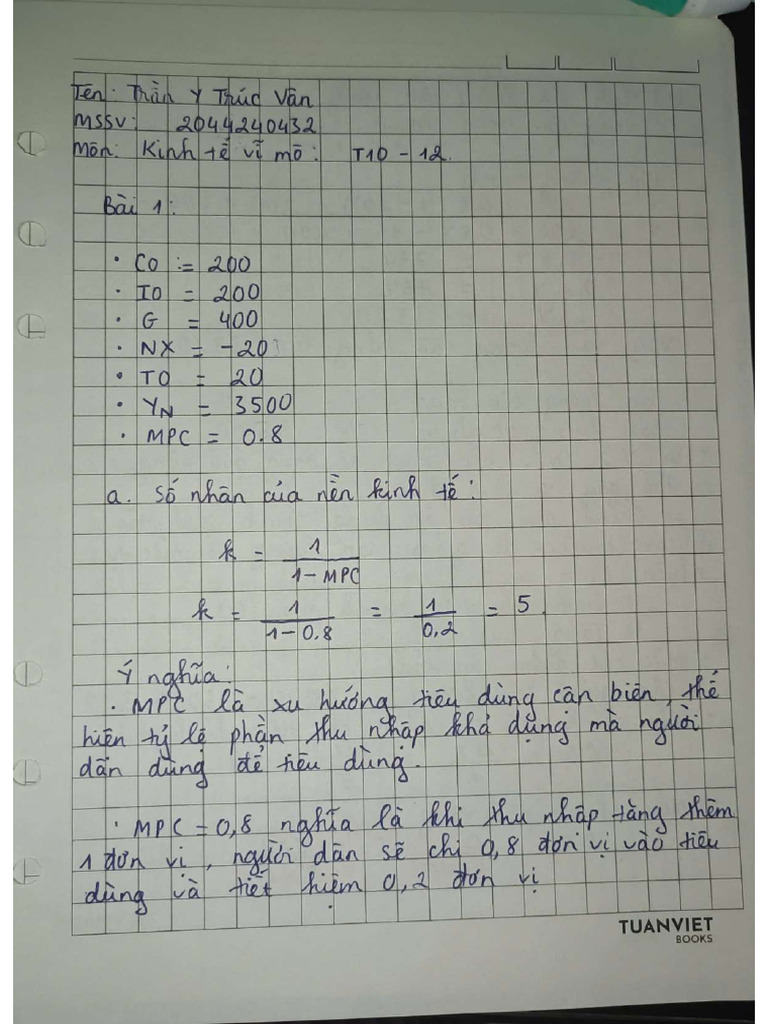 Tên: Trần Y Thúc Vân
MSSV: 2044240432
Môn: Kinh tế vĩ mô: T10 - 12.
Bài 1:
• C0 := 200
• I0 = 200
• G = 400
• NX = -20
• T0 = 20
• YN = 3500
• MPC = 0.8
a. Số nhân của nền kinh tế:
k = 1 / 1 - MPC
k = 1 / 1 - 0.8 = 1 / 0,2 = 5.
Ý nghĩa:
• MPC là xu hướng tiêu dùng cận biên, thể
hiện tỷ lệ phần thu nhập khả dụng mà người
dân dùng để tiêu dùng.
• MPC = 0,8 nghĩa là khi thu nhập tăng thêm
1 đơn vị, người dân sẽ chi 0,8 đơn vị vào tiêu
dùng và tiết kiệm 0,2 đơn vị
TUANVIET
BOOKS